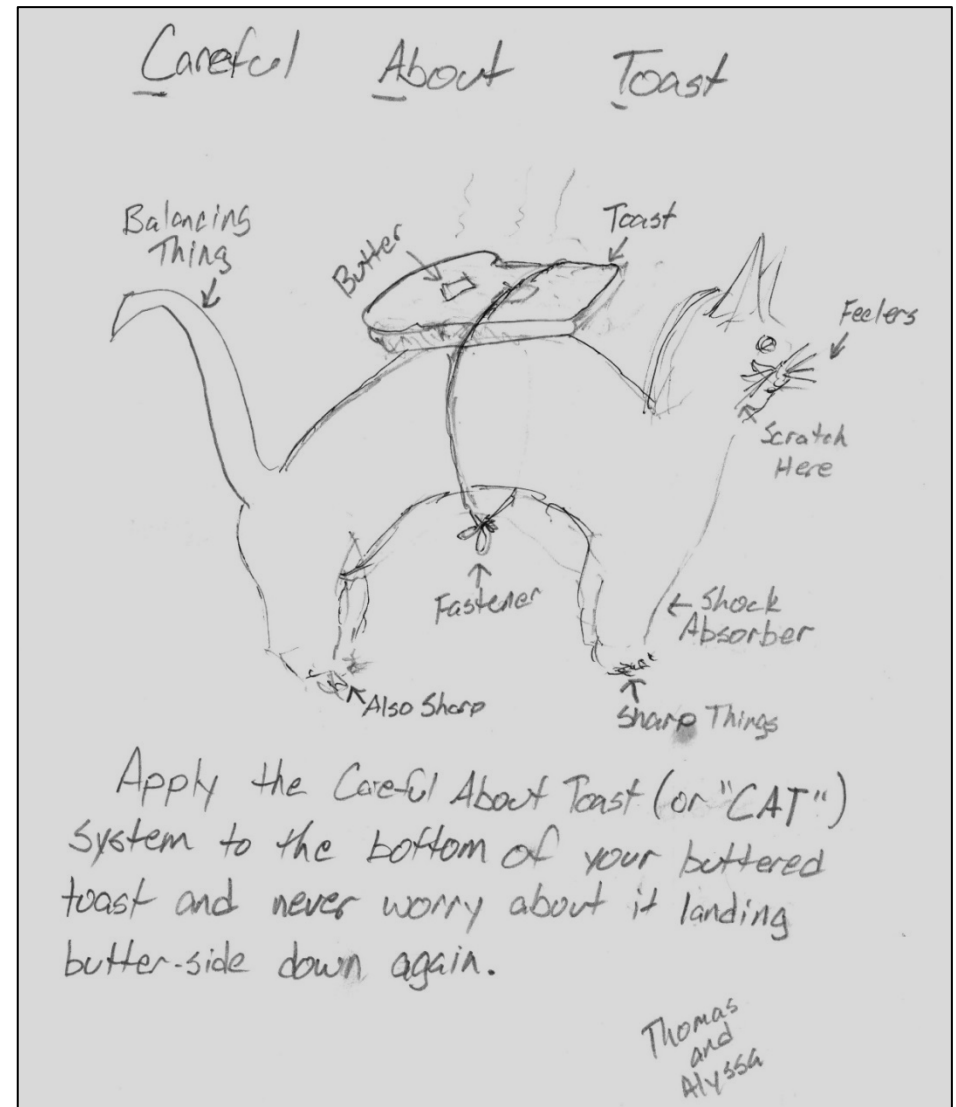 Careful About Toast
Balancing
Thing
Butter
Toast
Feelers
Scratch
Here
Fastener
Shock
Absorber
Also Sharp
Sharp Things
Apply the Careful About Toast (or "CAT")
system to the bottom of your buttered
toast and never worry about it landing
butter-side down again.
Thomas
and
Alyssa